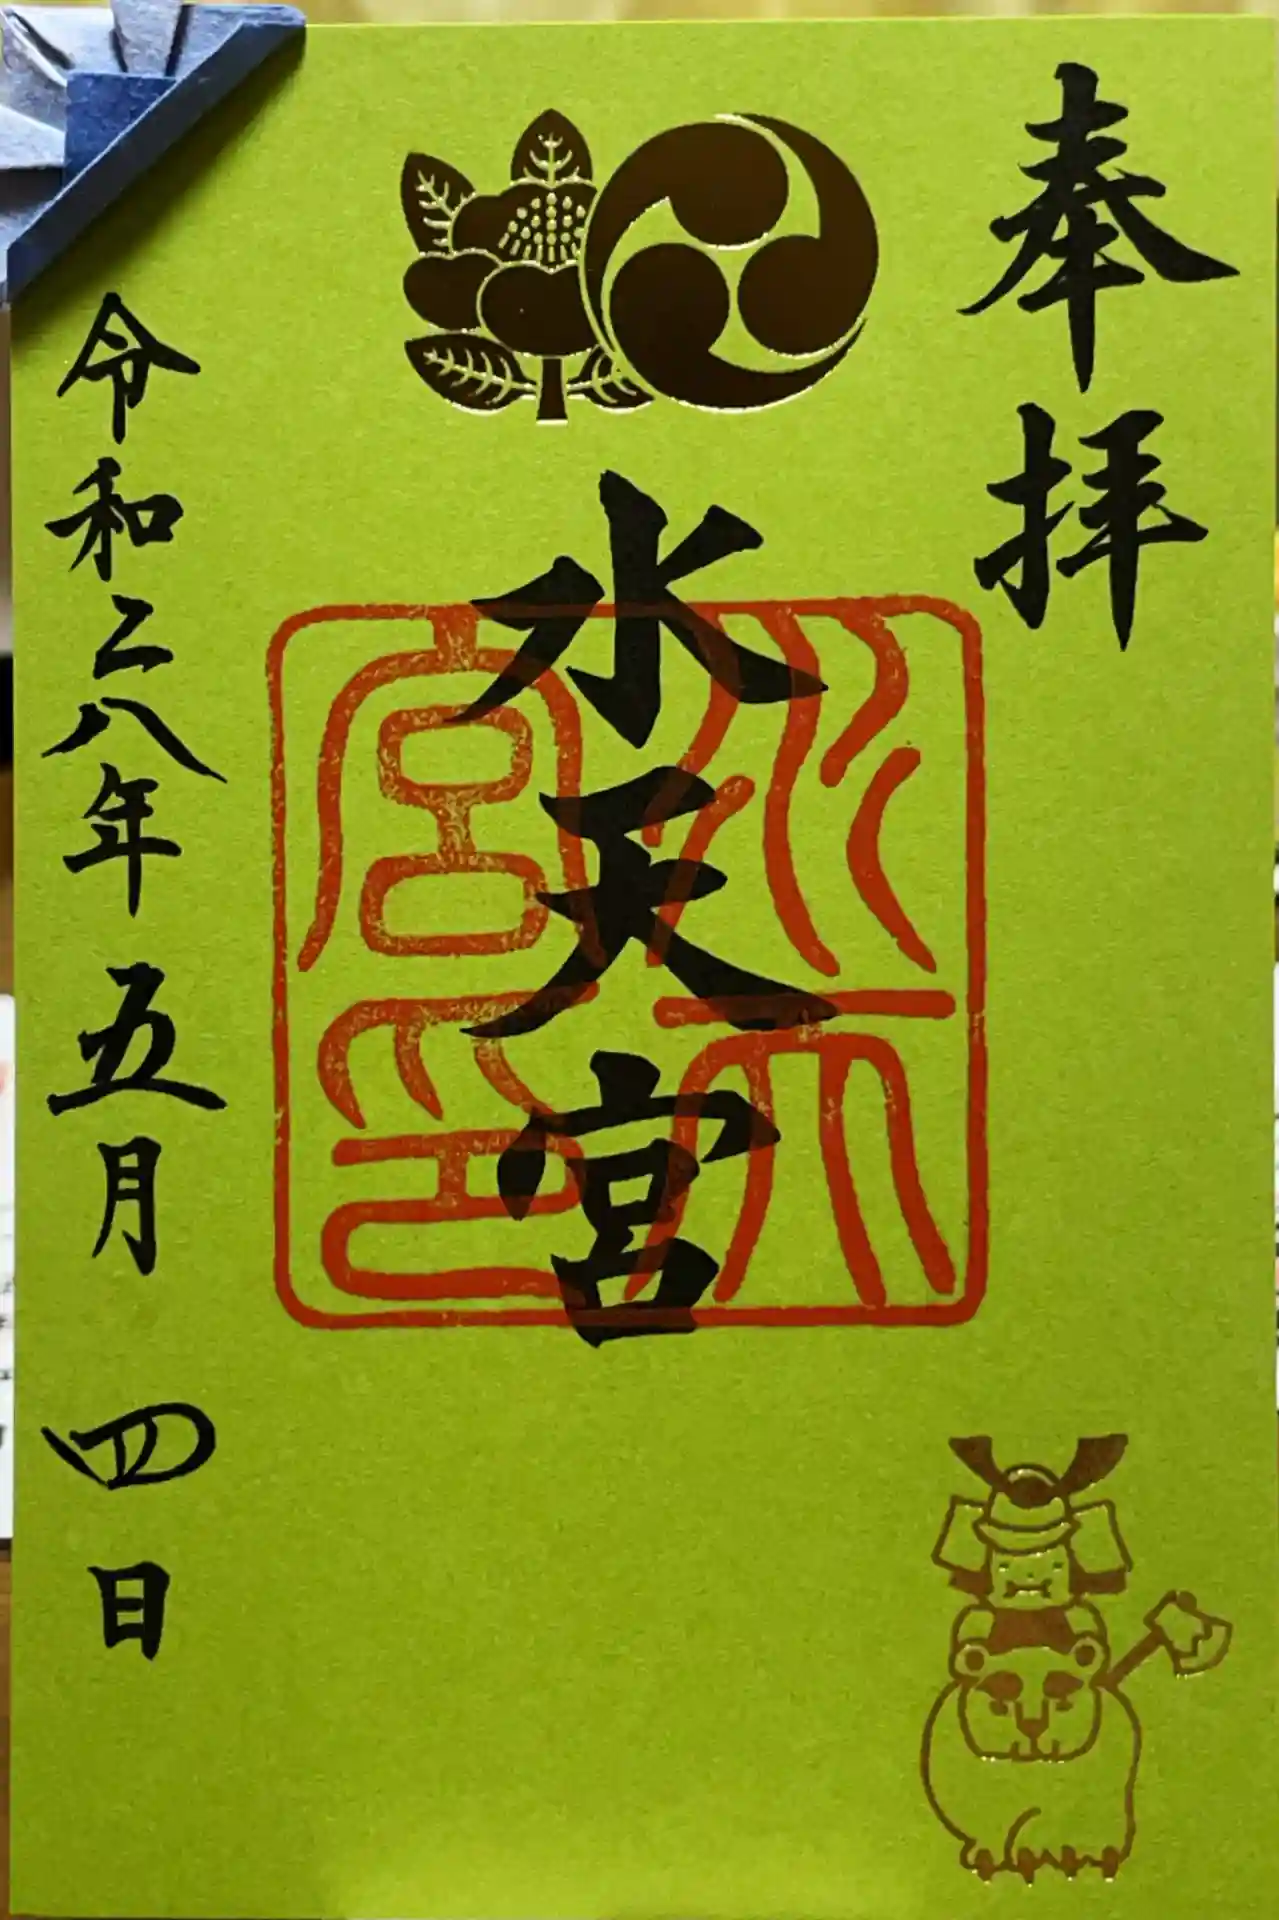 奉拝
水天宮
水天宮印
令和二八年五月四日